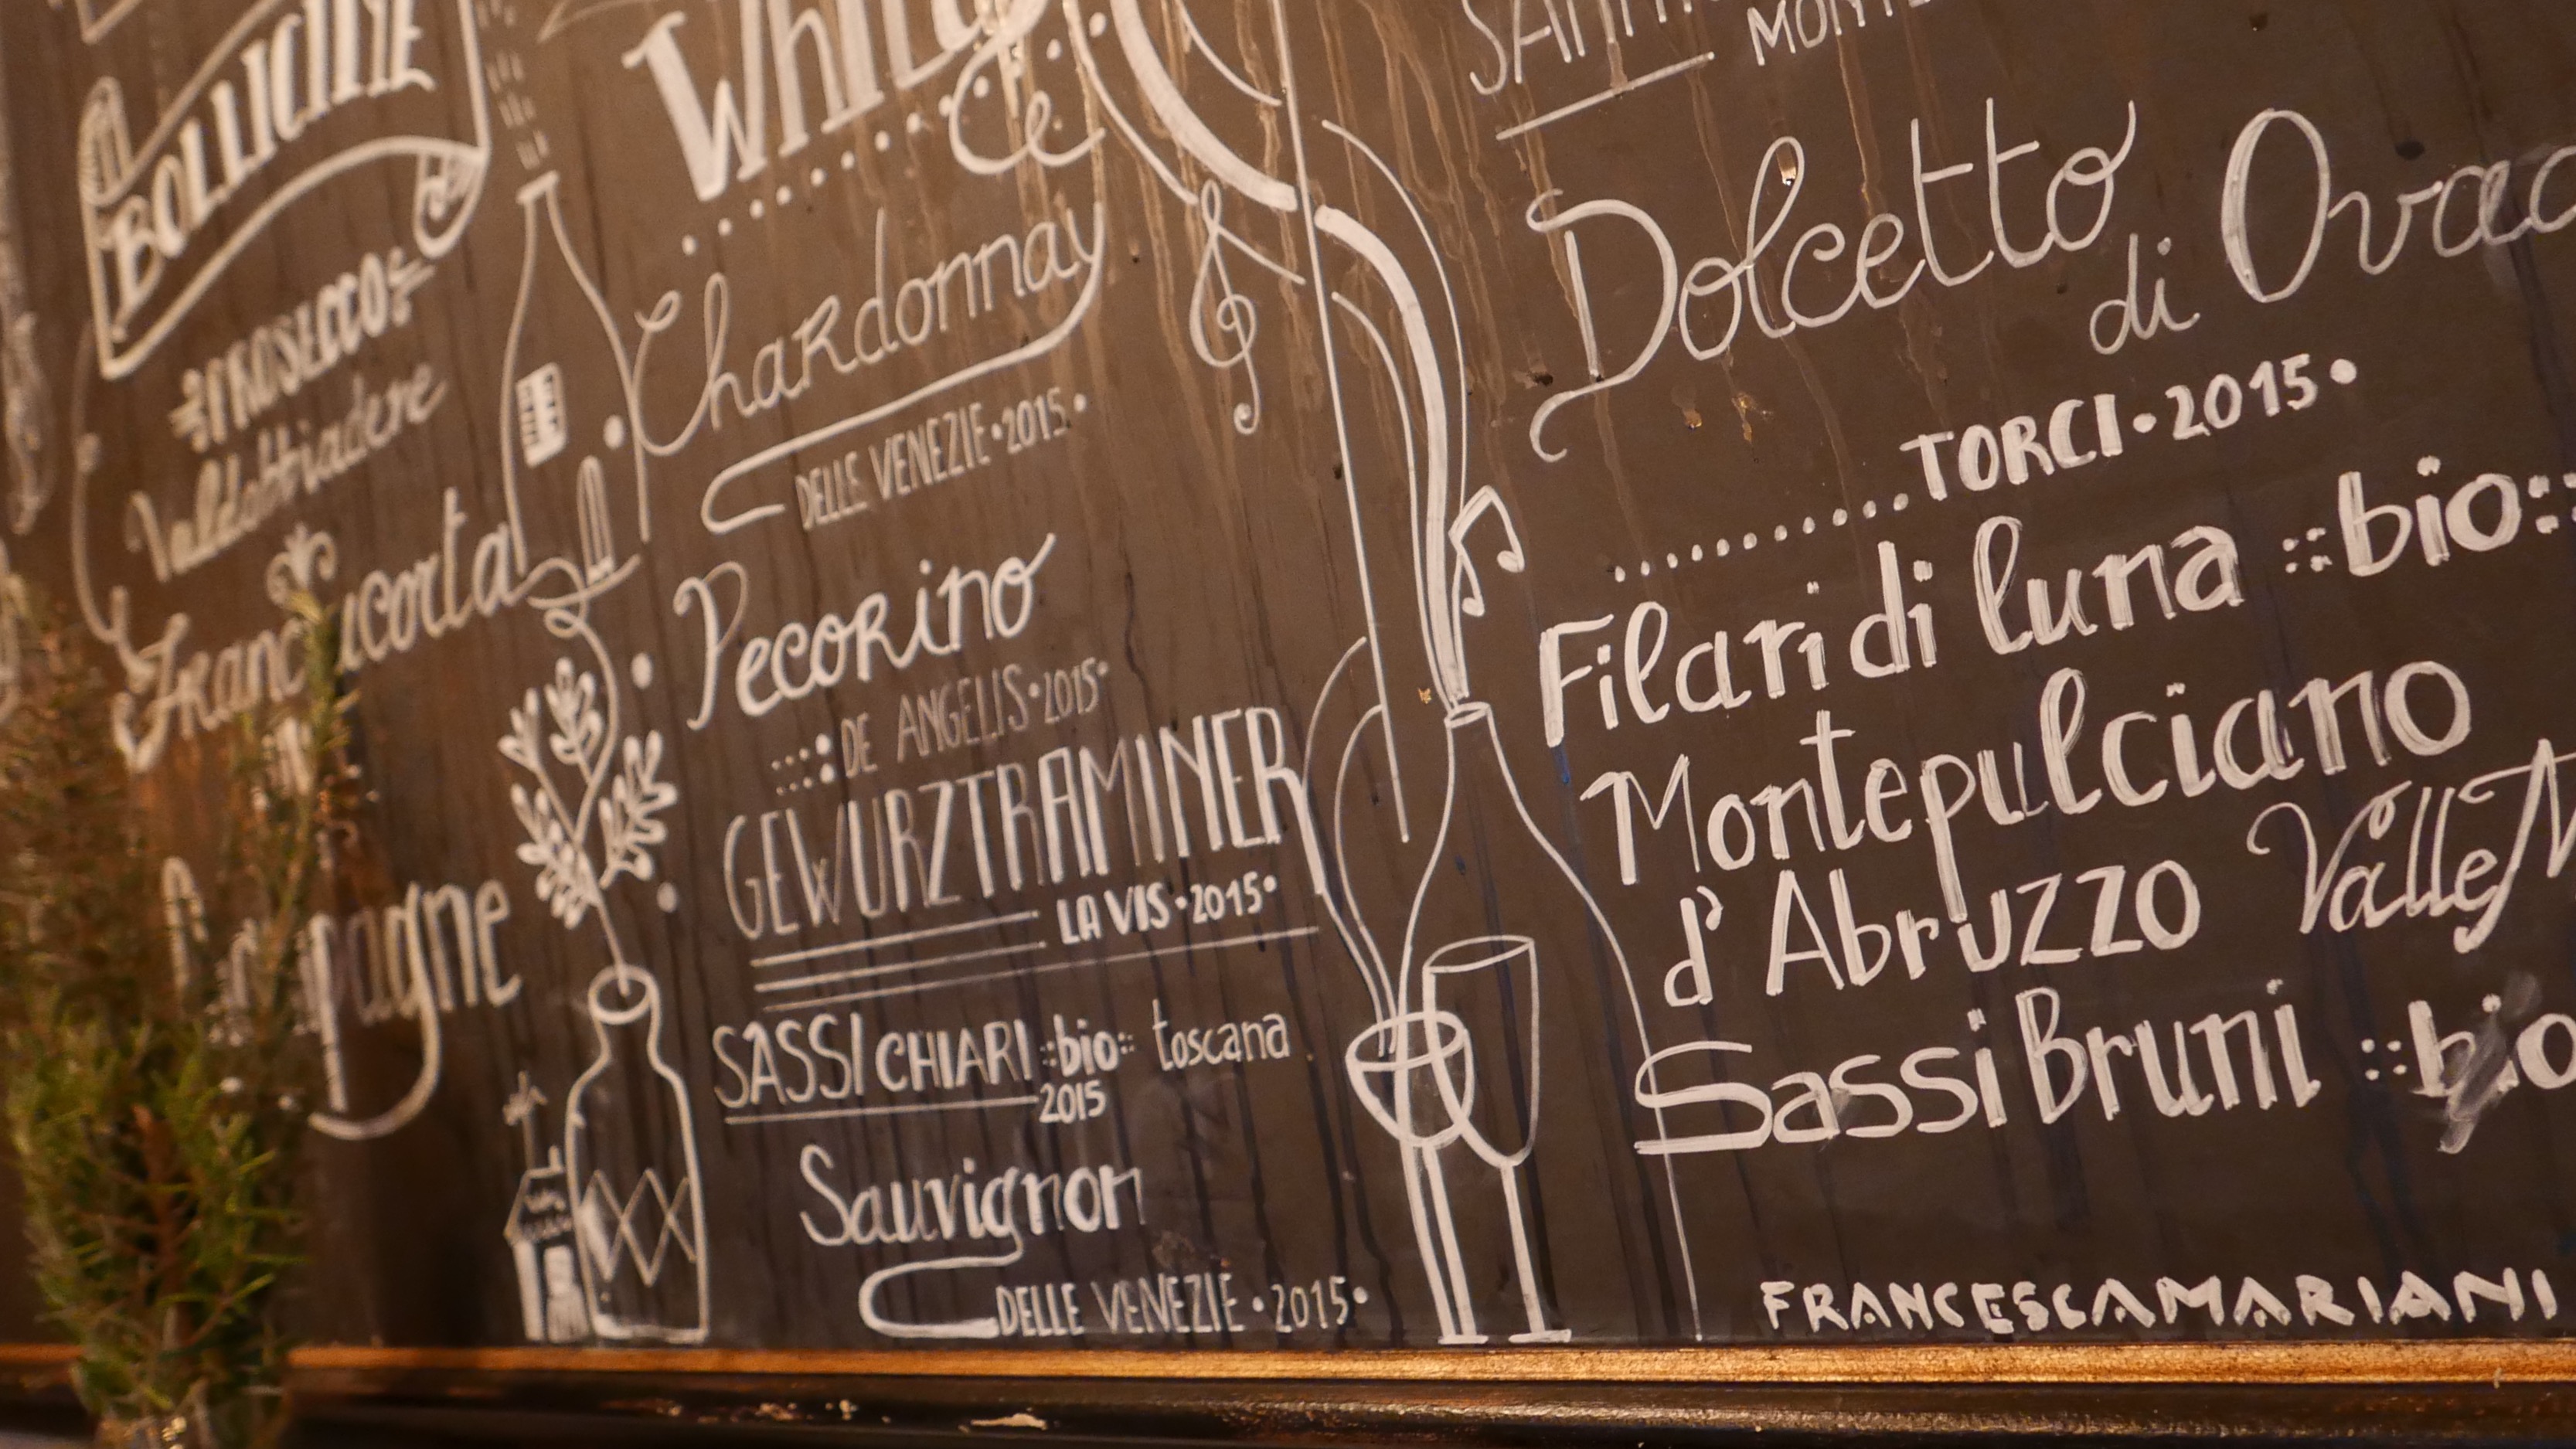 BOLLICINE
PROSECCO
Valdobbiadene
Franciacorta
White
Chardonnay
DELLE VENEZIE • 2015 •
Pecorino
DE ANGELIS • 2015 •
GEWURZTRAMINER
LA VIS • 2015 •
SASSI CHIARI :: bio :: toscana
2015
Sauvignon
DELLE VENEZIE • 2015 •
Dolcetto
di
TORCI • 2015 •
Filari di luna :: bio ::
Montepulciano
d'Abruzzo Valle
Sassi Bruni :: bio
FRANCESCAMARIANI